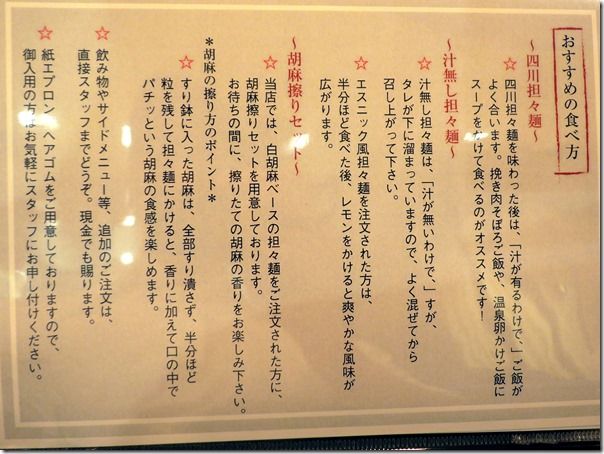 おすすめの食べ方
～四川担々麺～
☆四川担々麺を味わった後は、「汁が有るわけで、」ご飯が
よく合います。挽き肉そぼろご飯や、温泉卵かけご飯に
スープをかけて食べるのがオススメです！
～汁無し担々麺～
☆汁無し担々麺は、「汁が無いわけで、」すが、
タレが下に溜まっていますので、よく混ぜてから
召し上がって下さい。
☆エスニック風担々麺を注文された方は、
半分ほど食べた後、レモンをかけると爽やかな風味が
広がります。
～胡麻擦りセット～
☆当店では、白胡麻ベースの担々麺をご注文された方に、
胡麻擦りセットを用意しております。
お待ちの間に、擦りたての胡麻の香りをお楽しみ下さい。
＊胡麻の擦り方のポイント＊
☆すり鉢に入った胡麻は、全部すり潰さず、半分ほど
粒を残して担々麺にかけると、香りに加えて口の中で
パチッという胡麻の食感を楽しめます。
☆飲み物やサイドメニュー等、追加のご注文は、
直接スタッフまでどうぞ。現金でも賜ります。
☆紙エプロン、ヘアゴムをご用意しておりますので、
御入用の方はお気軽にスタッフにお申し付けください。